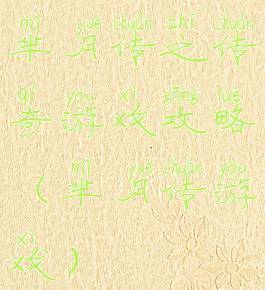 mǐ yuè chuán zhī chuán
芈月传之传
qí yóu xì gōng lüè
奇游戏攻略
mǐ yuè chuán yóu
(芈月传游
xì
戏)